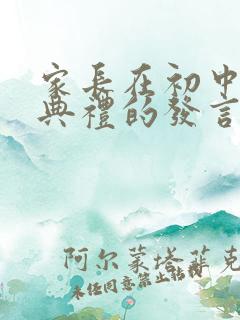 家長在初中
典禮的發言
阿尔蒙塔菲克
未经同意禁止转载